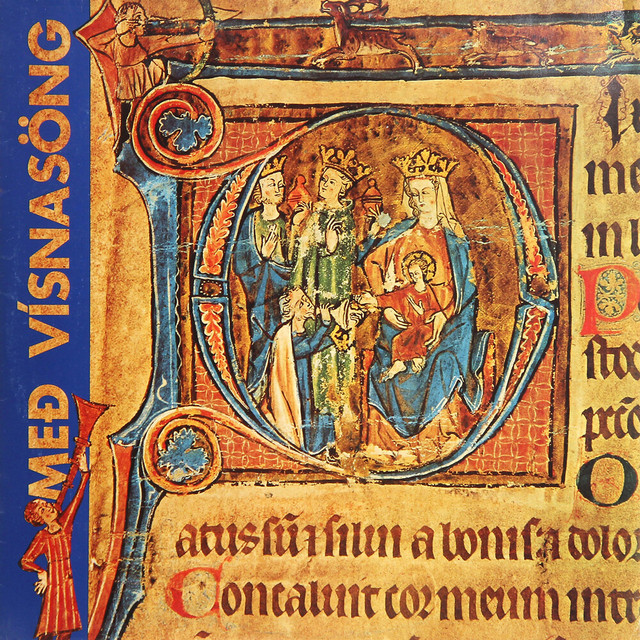 MEÐ VÍSNASÖNG
me
in
P
sto
O
atus sū ⁊ silui a bonis: ⁊ dolor
Concaluit cor meum intr